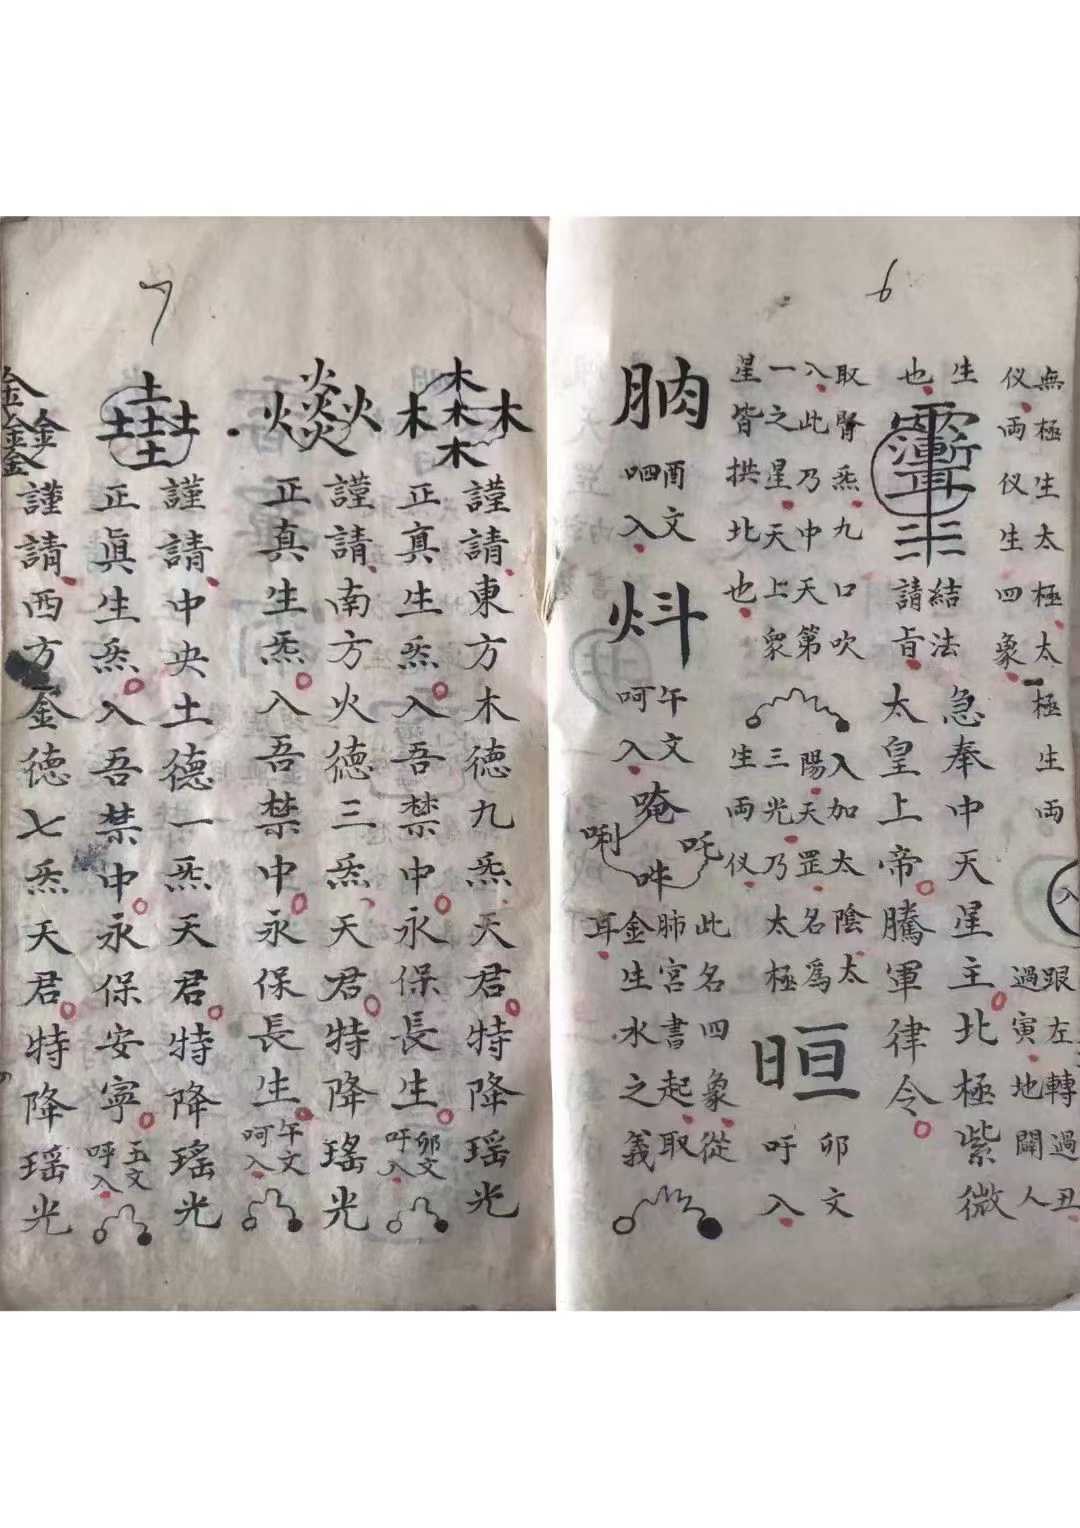 6
無極生太極太極生両
仪両仪生四象
入
跟左轉過丑
過寅地闢人
生
也
結法
請旨
急奉中天星主北極紫微
太皇上帝騰軍律令
取腎炁九口吹
入此乃中天第
一之星天上衆
星皆拱北也
入加太陰太
陽天罡名為
三光乃太極
生両仪
晅
卯文
吁入
肭
酉文
呬入
炓
午文
呵入
唵
吒
唎
吽
此名四象從
肺宮書起取
金生水之義
耳
7
木木木木木
謹請東方木德九炁天君特降瑶光
正真生炁入吾禁中永保長生
卯文
吁入
火炎火炎火
謹請南方火德三炁天君特降瑤光
正真生炁入吾禁中永保長生
午文
呵入
土土土土土
謹請中央土德一炁天君特降瑤光
正眞生炁入吾禁中永保安寧
玉文
呼入
金金金金
謹請西方金德七炁天君特降瑶光